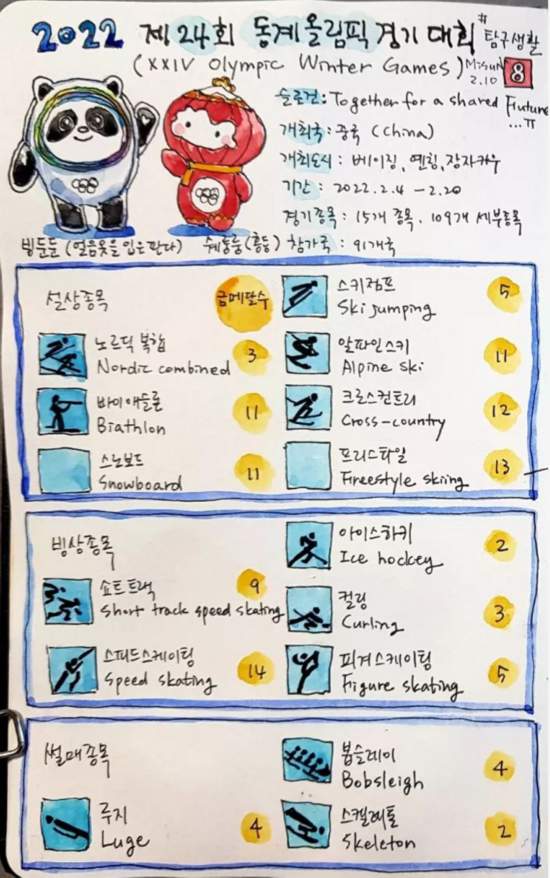 2022 제24회 동계올림픽 경기대회 #탐구생활
(XXIV Olympic Winter Games) Misun 2.10 8
슬로건: Together for a shared Fiuture
...π
개최국: 중국 (China)
개최도시: 베이징, 옌칭, 장자커우
기간: 2022.2.4 - 2.20
경기종목: 15개 종목, 109개 세부종목
빙둔둔 (얼음옷을 입은 판다) 쉐룽룽(홍등) 참가국: 91개국
설상종목 금메달수
노르딕 복합 3
Nordic combined
바이애슬론 11
Biathlon
스노보드 11
Snowboard
스키점프 5
Ski jumping
알파인스키 11
Alpine ski
크로스컨트리 12
Cross-country
프리스타일 13
Fireestyle skiing
빙상종목
쇼트트랙 9
Short track speed skating
스피드스케이팅 14
Speed skating
아이스하키 2
Ice hockey
컬링 3
Curling
피겨스케이팅 5
Figure skating
썰매종목
루지 4
Luge
봅슬레이 4
Bobsleigh
스켈레톤 2
Skeleton